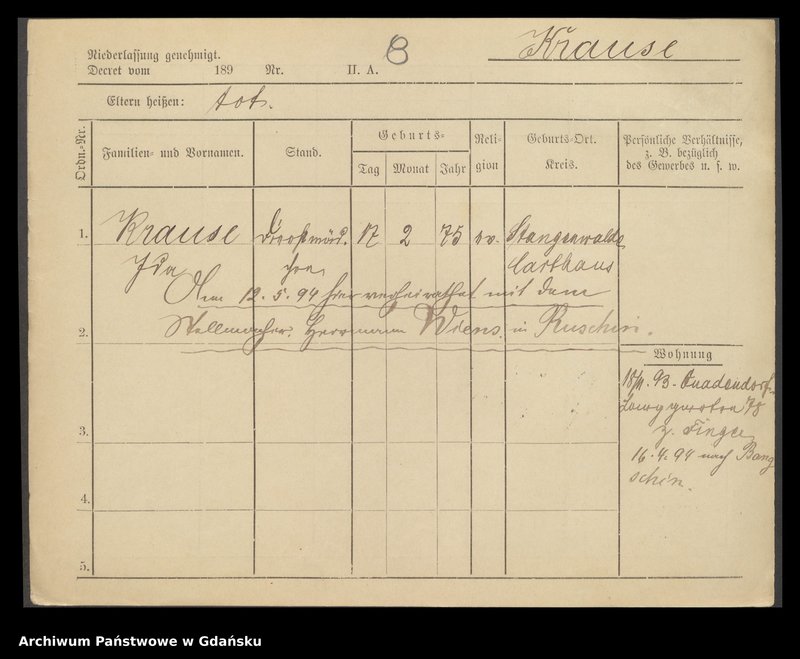 8
Krause
Niederlassung genehmigt.
Decret vom 189 Nr. II. A.
Eltern heißen: tot.
Ordn.-Nr.
Familien- und Vornamen.
Stand.
Geburts-
Tag
Monat
Jahr
Reli-
gion
Geburts-Ort.
Kreis.
Persönliche Verhältnisse,
z. B. bezüglich
des Gewerbes u. s. w.
1. Krause Dienstmäd. 17 2 75 ev. Stangenwalde
Ida chen Carthaus
Am 12. 5. 94 hier verheirathet mit dem
2. Stellmacher Herrmann Wiens in Ruschin.
Wohnung
93. Quadendorf
Langgarten 78
3. z. Finger
16. 4. 94 nach Bang
schin.
4.
5.
Archiwum Państwowe w Gdańsku